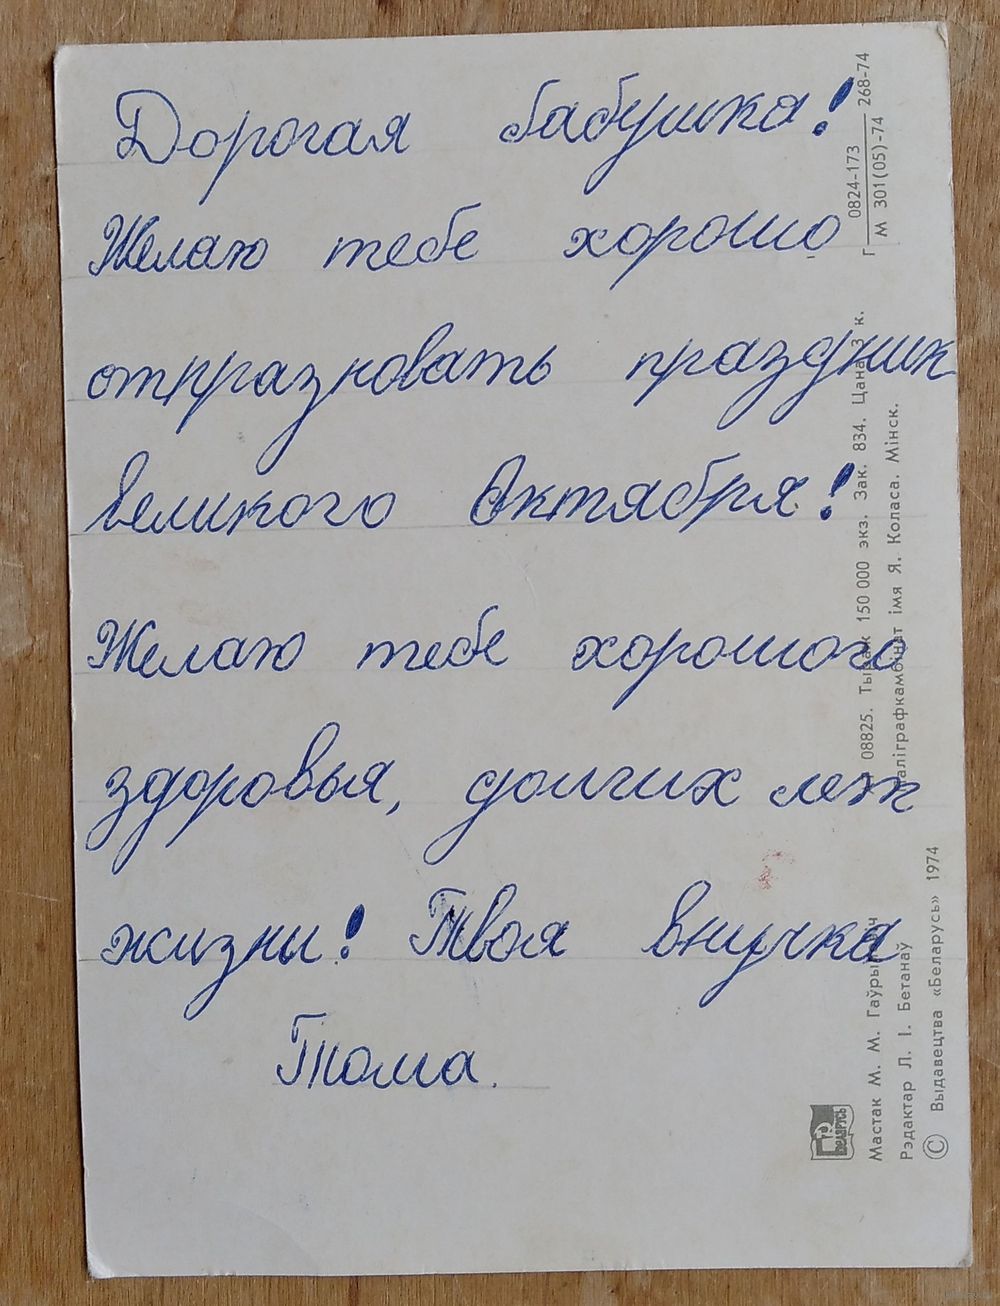 Дорогая бабушка!
Желаю тебе хорошо
отпразновать праздник
великого Октября!
Желаю тебе хорошего
здоровья, долгих лет
жизни! Твоя внучка
Тома.
Г 0824-173 268-74
М 301(05)-74
08825. Тыраж 150 000 экз. Зак. 834. Цана 3 к.
імя Я. Коласа. Мінск.
БЕЛАРУСЬ
Мастак М. М. Гаўрыловіч
Рэдактар Л. І. Бетанаў
© Выдавецтва «Беларусь» 1974